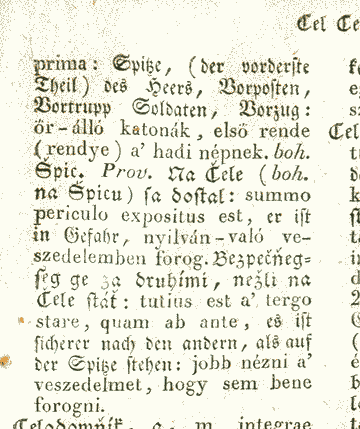 Cel Ce
prima: Spitze, (der vorderste
Theil) des Heers, Vorposten,
Vortrupp Soldaten, Vorzug:
őr-álló katonák, első rende
(rendye) a' hadi népnek. boh.
Špic. Prov. Na Čele (boh.
na Špicu) sa dostal: summo
periculo expositus est, er ist
in Gefahr, nyilván-való ve-
szedelemben forog. Bezpečňeg-
šeg ge za druhími, nežli na
Čele stáť: tutius est a' tergo
stare, quam ab ante, es ist
sicherer nach den andern, als auf
der Spitze stehen: jobb nézni a'
veszedelmet, hogy sem bene
forogni.
Čelodomňík, a, m. integrae